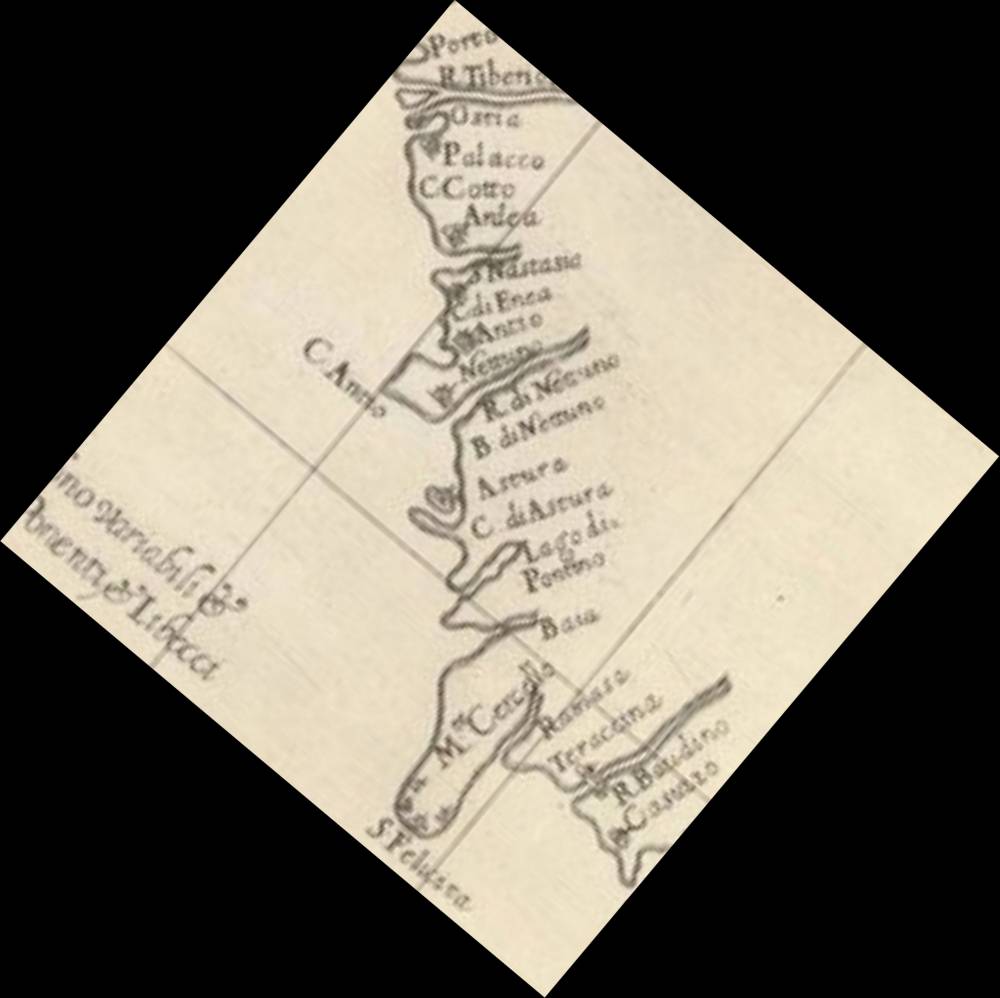 Porto
R. Tiberi
Ostia
Palacco
C Cotto
Ardea
S Nastasia
C. di Enea
Antio
Nettuno
C. Antio
R. di Nettuno
B. di Nettuno
Astura
C. di Astura
Lago di
Pontino
Baia
Mte Cercello
Ramasa
Teraccina
R Baudino
Castro
S Felicita
ino Variabili &
Ponenti & Libecci